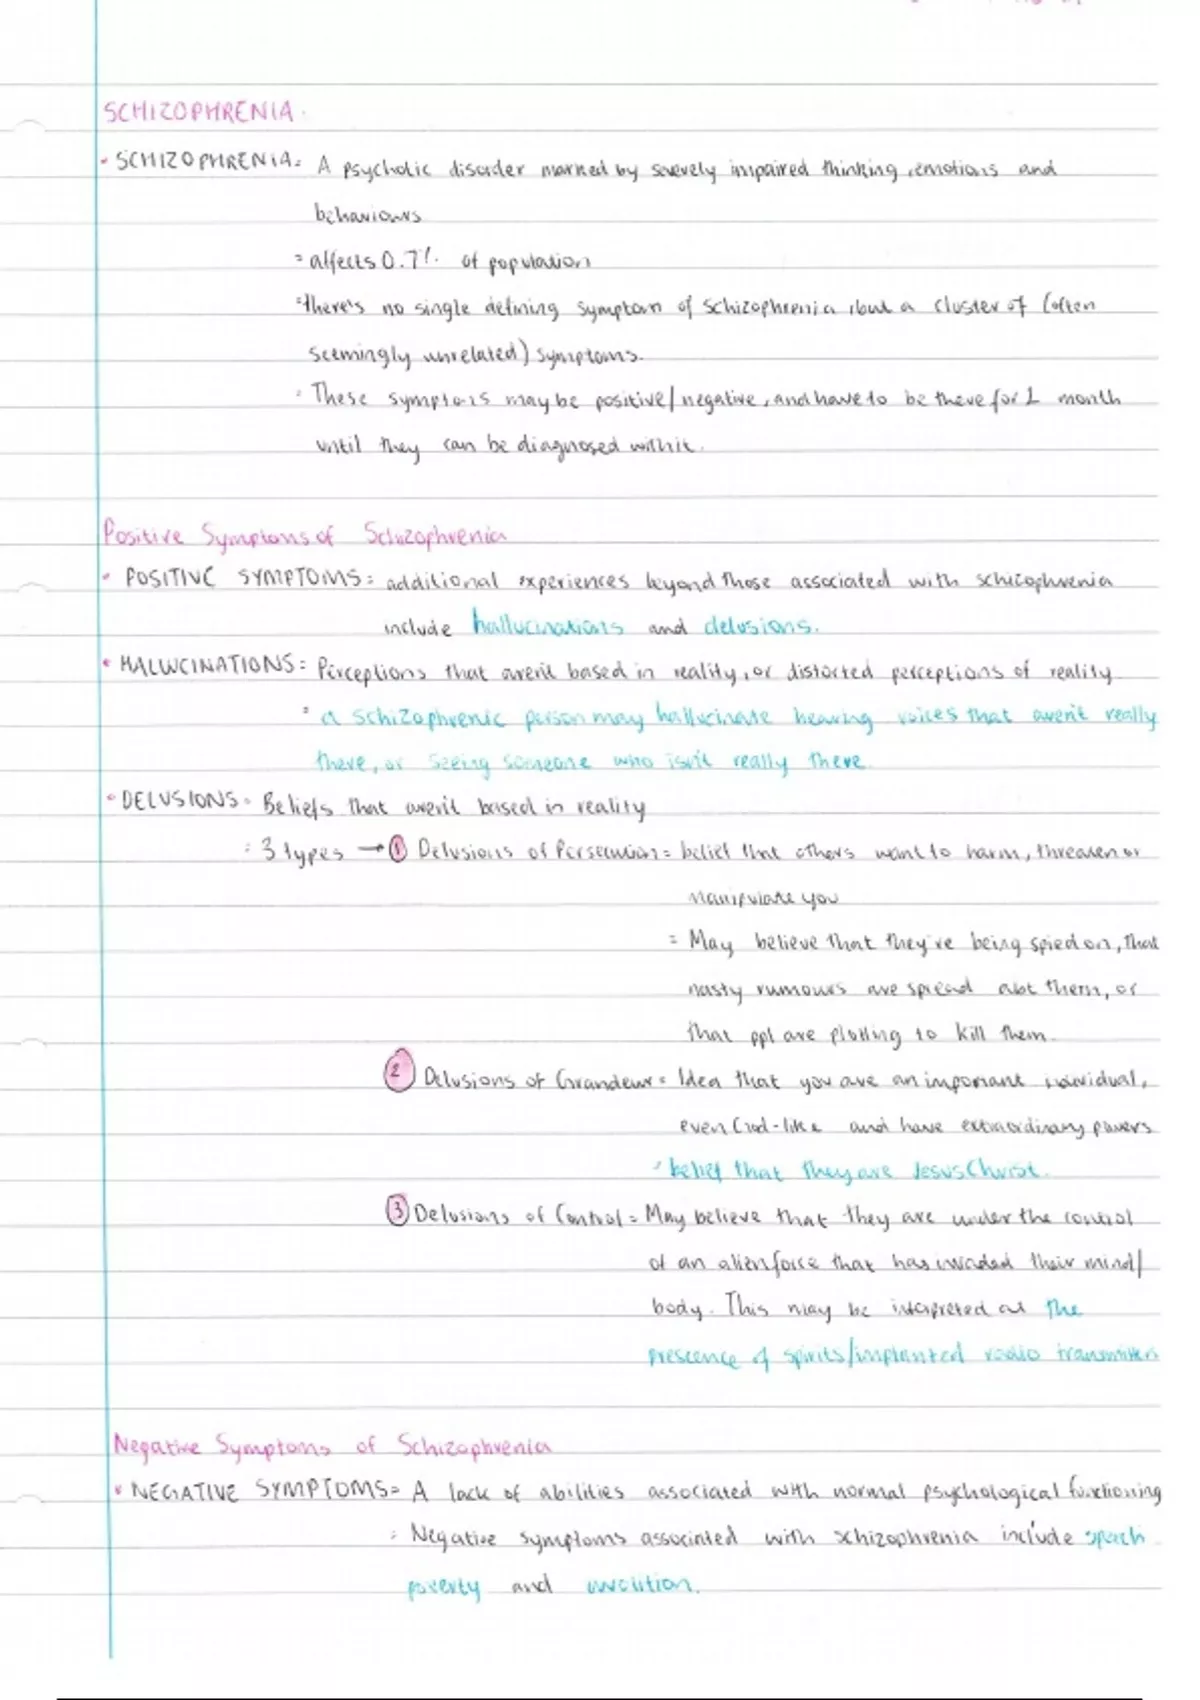 SCHIZOPHRENIA.
• SCHIZOPHRENIA = A psychotic disorder marked by severely impaired thinking, emotions and
behaviours
= affects 0.7% of population
= there's no single defining symptom of schizophrenia, but a cluster of (often
seemingly unrelated) symptoms.
= These symptoms may be positive/negative, and have to be there for 1 month
until they can be diagnosed with it.
Positive Symptoms of Schizophrenia
• POSITIVE SYMPTOMS = additional experiences beyond those associated with schizophrenia
include hallucinations and delusions.
• HALLUCINATIONS = Perceptions that aren't based in reality, or distorted perceptions of reality
= a schizophrenic person may hallucinate hearing voices that aren't really
there, or seeing someone who isn't really there.
• DELUSIONS = Beliefs that aren't based in reality
= 3 types → ① Delusions of Persecution = belief that others want to harm, threaten or
manipulate you
= May believe that they're being spied on, that
nasty rumours are spread abt them, or
that ppl are plotting to kill them.
② Delusions of Grandeur = Idea that you are an important individual,
even God-like and have extraordinary powers
= belief that they are Jesus Christ.
③ Delusions of Control = May believe that they are under the control
of an alien force that has invaded their mind/
body. This may be interpreted as the
prescence of spirits/implanted radio transmitters
Negative Symptoms of Schizophrenia
• NEGATIVE SYMPTOMS = A lack of abilities associated with normal psychological functioning
= Negative symptoms associated with schizophrenia include speech
poverty and avolition.